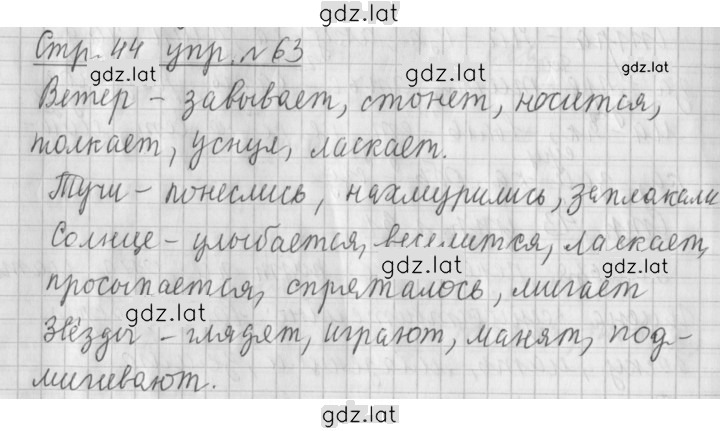 gdz.lat
Стр. 44 упр. №63
gdz.lat gdz.lat gdz.lat
Ветер – завывает, стонет, носится,
толкает, уснул, ласкает.
Тучи – понеслись, нахмурились, заплакали
Солнце – улыбается, веселится, ласкает,
gdz.lat gdz.lat gdz.lat
просыпается, спряталось, мигает
gdz.lat gdz.lat
Звёзды – глядят, играют, манят, под-
мигивают.
gdz.lat